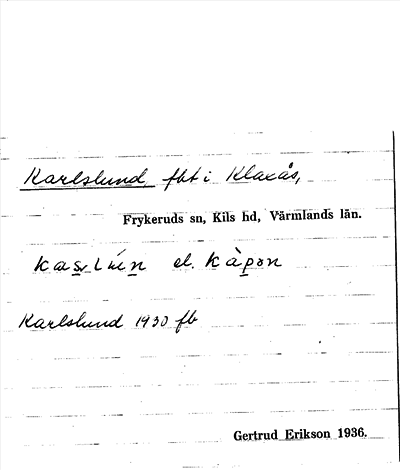 Karlslund, fbt i Klaxås,
Frykeruds sn, Kils hd, Värmlands län.
el. kàpon
Karlslund 1930 fb
Gertrud Erikson 1936.